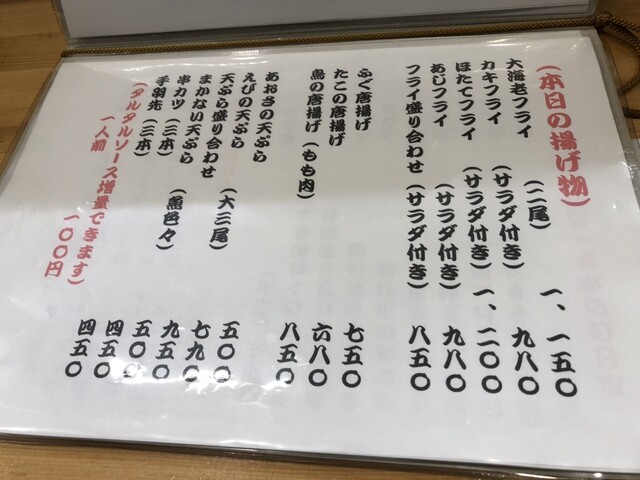 (本日の揚げ物)
大海老フライ (二尾) 一、一五〇
カキフライ (サラダ付き) 九八〇
ほたてフライ (サラダ付き) 一、二〇〇
あじフライ (サラダ付き) 九八〇
フライ盛り合わせ (サラダ付き) 八五〇
ふぐ唐揚げ 七五〇
たこの唐揚げ 六八〇
鳥の唐揚げ (もも肉) 八五〇
あおさの天ぷら 五〇〇
えびの天ぷら (大三尾) 七九〇
天ぷら盛り合わせ 九五〇
まかない天ぷら (魚色々) 五〇〇
串カツ (三本) 四五〇
手羽先 (三本) 四五〇
(タルタルソース増量できます)
一人前 一〇〇円